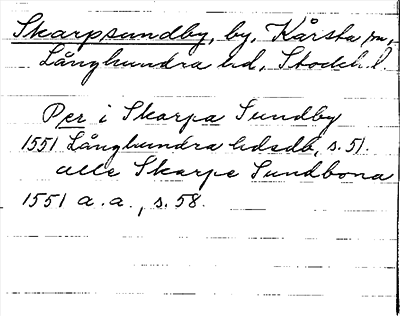 Skarpsundby, by, Kårsta sn,
Långhundra hd, Stockh. l.
Per i Skarpa Sundby
1551 Långhundra hdsdb, s. 51.
alle Skarpe Sundbona
1551 a. a., s. 58.